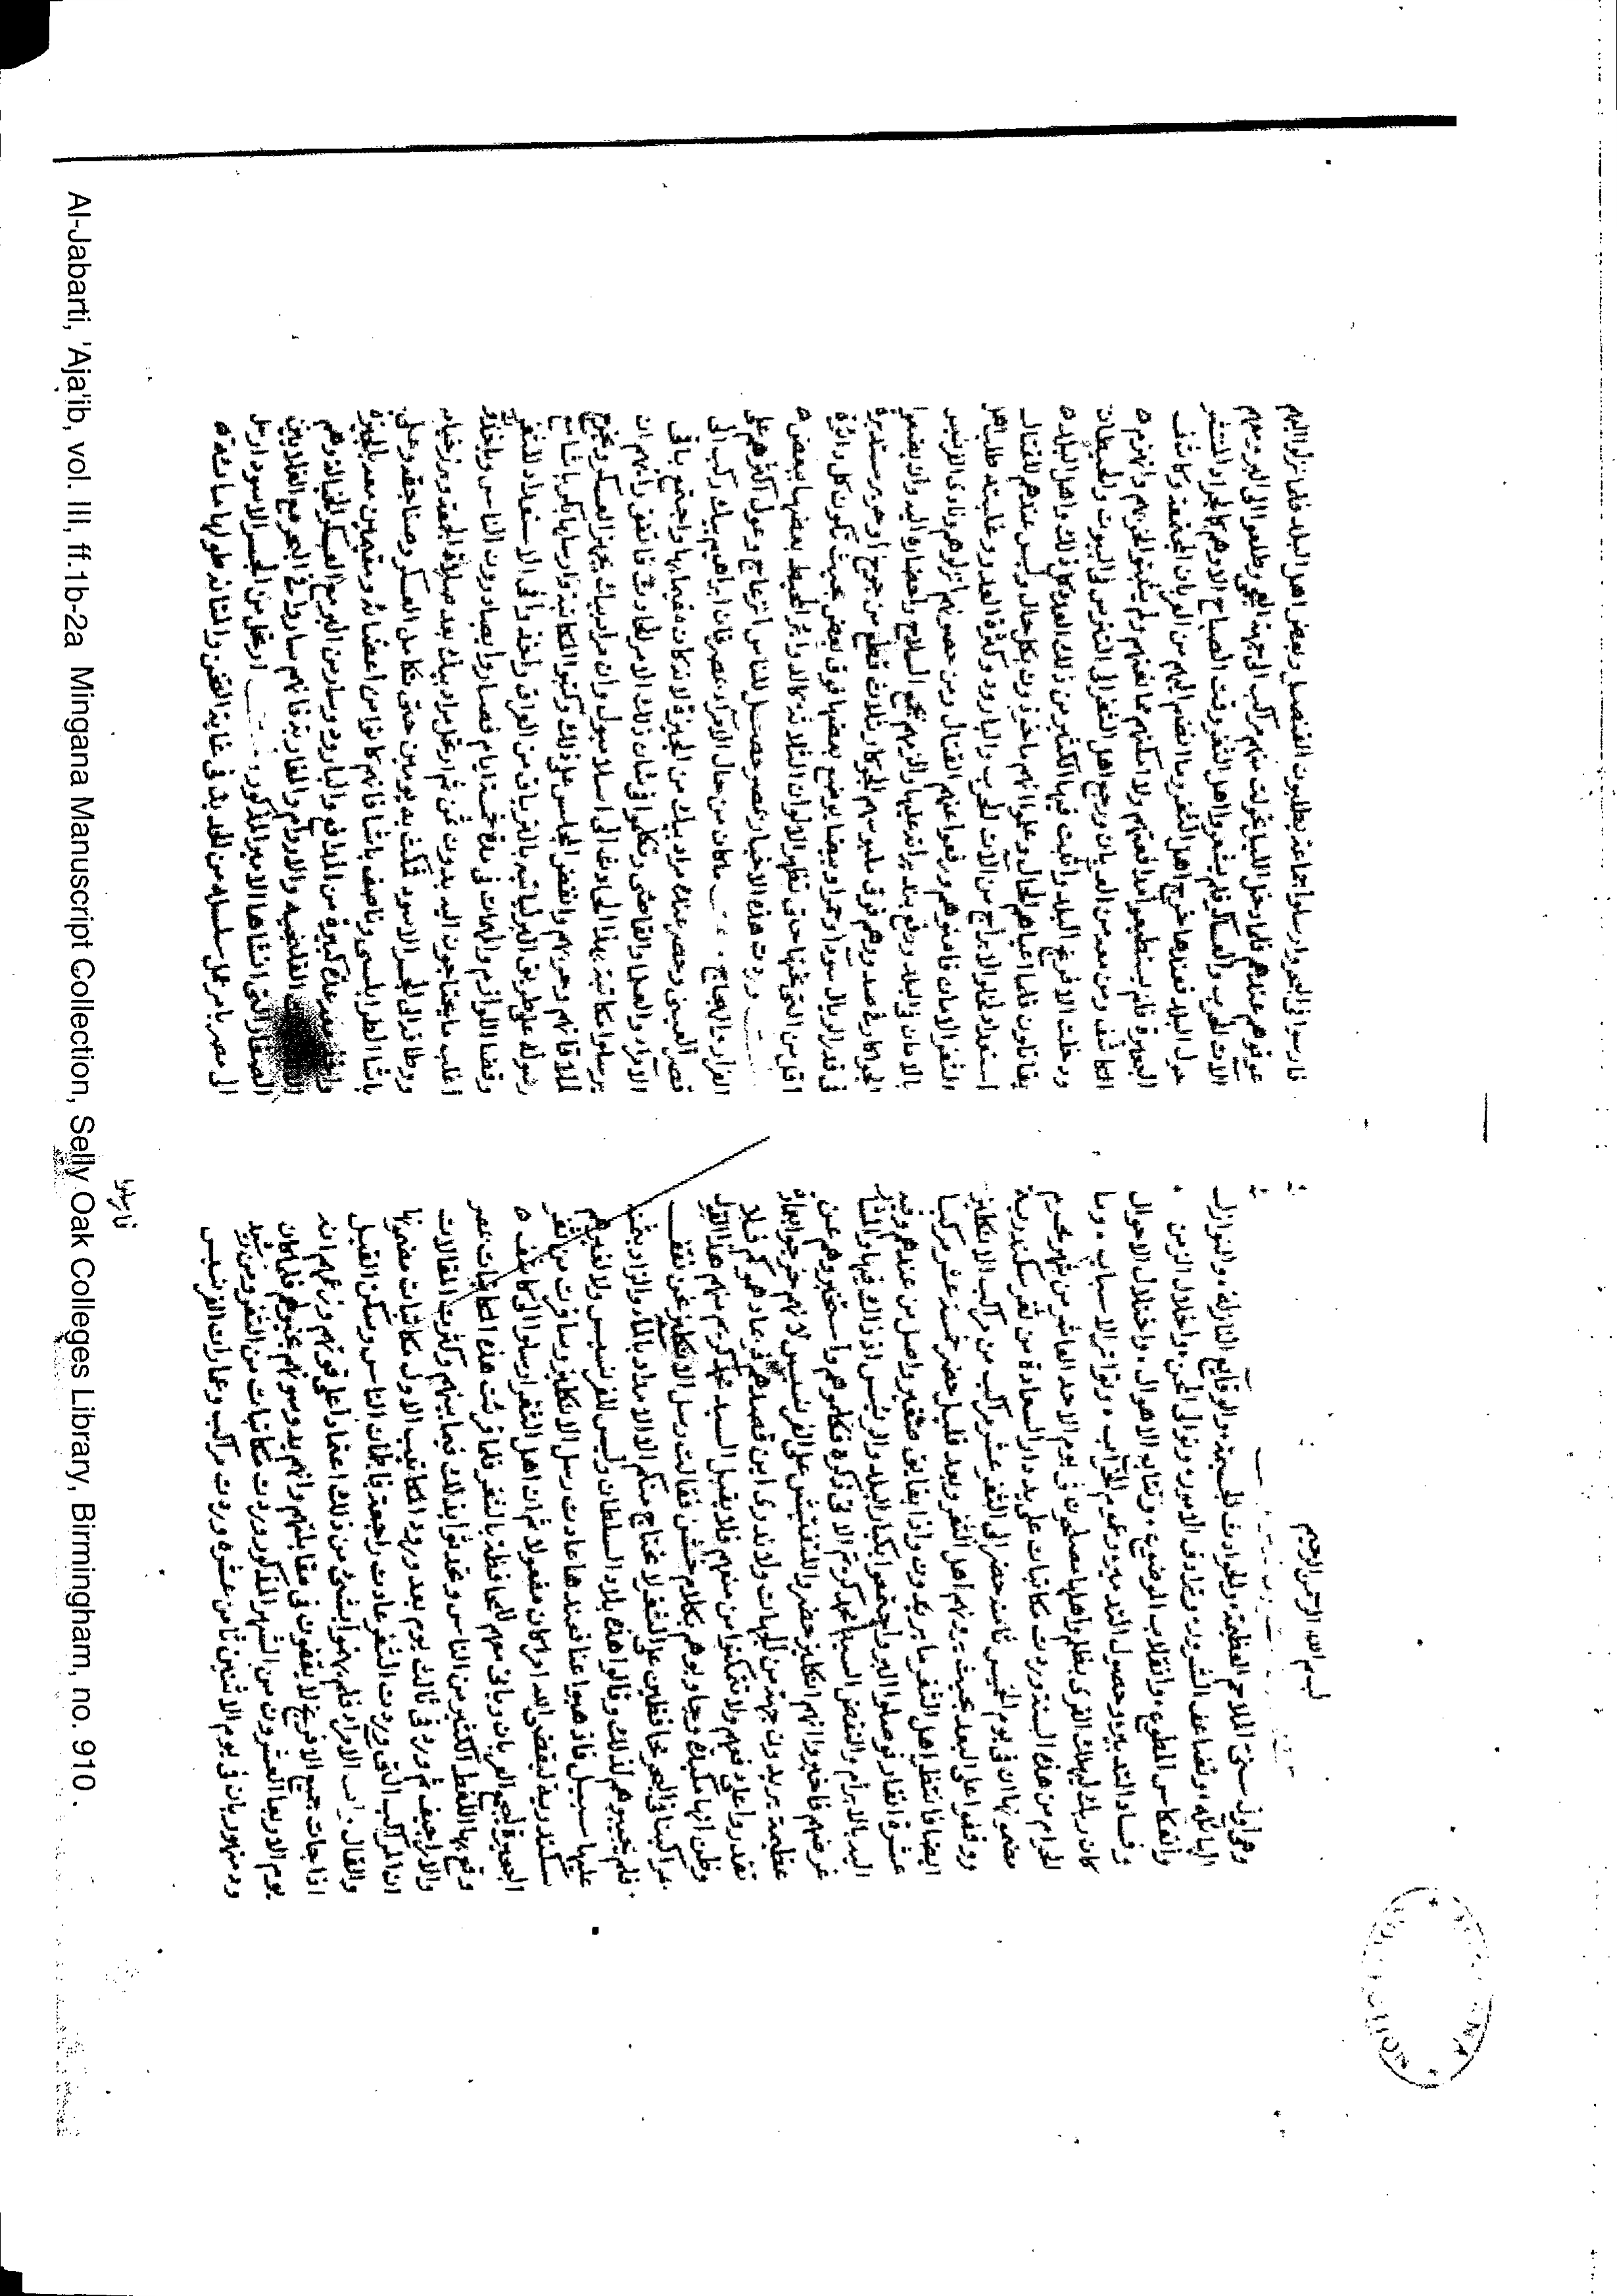 بسم الله الرحمن الرحيم
وهي اول سني الملاحم العظيمة والحوادث الجسيمة والوقايع النازلة والنوازل
الهايلة وتضاعف الشرور وترادف الامور وتوالي المحن واختلال الزمن
وانعكاس المطبوع وانقلاب الموضوع وتتابع الاهوال واختلال الاحوال
وفساد التدبير وحصول التدمير وعموم الخراب وتواتر الاسباب وما
كان ربك ليهلك القرى بظلم واهلها مصلحون في يوم الاحد العاشر من شهر محرم
الحرام من هذه السنة وردت مكاتبات على يد دار السعادة من ثغر سكندرية
مضمونها ان في يوم الخميس ثامنه حضر الى الثغر عشر مراكب من مراكب الانكليز
ووقفوا على البعد بحيث يرونهم اهل الثغر وبعد قليل حضر خمسة عشر مركبا
ايضا فانتظر اهل الثغر ما يريدون واذا بقايق صغير واصل من عندهم وفيه
عشرة انفار فوصلوا البر واجتمعوا بكبار البلد والرئيس اذ ذاك فيها والمشار
اليه بالابرام والنقض السيد محمد كريم الاتي ذكره فكلموهم واستخبروهم عن
غرضهم فاخبروا انهم انكليز حضروا للتفتيش على الفرنسيس لانهم خرجوا بعمارة
عظيمة يريدون جهة من الجهات ولا ندري اين قصدهم فربما دهموكم فلا
تقدروا على دفعهم ولا تتمكنوا من منعهم فلا يقبل السيد محمد كريم منهم هذا القول
وظن انها مكيدة وجاوبوهم بكلام خشن فقالت رسل الانكليز نحن نقف
بمراكبنا في البحر محافظين على الثغر لا نحتاج منكم الا الامداد بالماء والزاد بثمنه
فلم يجيبوهم لذلك وقالوا هذه بلاد السلطان وليس للفرنسيس ولا لغيرهم
عليها سبيل فاذهبوا عنا فعندها عادت رسل الانكليز وسافرت من ثغر
سكندرية ليقضي الله امرا كان مفعولا ثم ان اهل الثغر ارسلوا الى كاشف
البحيرة ليجمع العربان وياتي معهم للمحافظة بالثغر فلما قرئت هذه المكاتبات بمصر
وقع بها اللغط الكثير من الناس وتحدثوا بذلك فيما بينهم وكثرت المقالات
والاراجيف ثم ورد في ثالث يوم بعد ورود المكاتيب الاول مكاتبات مضمونها
ان المراكب التي وردت الثغر عادت راجعة فاطمان الناس وسكن القيل
والقال الامراء فلم يهتموا بشئ من ذلك اعتمادا على قوتهم وزعمهم انه
اذا جات جميع الافرنج لا يقفون في مقابلتهم وانهم يدوسونهم بخيولهم فلما كان
يوم الاربعا العشرون من الشهر المذكور وردت مكاتبات من الثغر ومن رشيد
ودمنهور بان في يوم الاثنين ثامن عشره وردت مراكب وعمارات الفرنسيس
فارسلوا
فارسوا في البحر وارسلوا جماعة يطلبون القنصل وبعض اهل البلد فلما نزلوا اليهم
عوقوهم عندهم فلما دخل الليل تحولت منهم مراكب الى جهة العجمي وطلعوا الى البر ومعهم
الات الحرب والعساكر فلم يشعروا اهل الثغر وقت الصباح الا وهم كالجراد المنتشر
حول البلد فعندها خرج اهل الثغر وما انضم اليهم من العربان المجتمعة وكاشف
البحيرة فلم يستطيعوا مدافعتهم ولا امكنهم ممانعتهم ولم يثبتوا لحربهم وانهزم
الكاشف ومن معه من العربان ورجع اهل الثغر الى التترس في البيوت والحيطان
ودخلت الافرنج البلد وانبث فيها الكثير من ذلك العدد كل ذلك واهل البلد
يقاتلون فلما اعياهم الحال وعلموا انهم ماخوذون بكل حال وليس عندهم للقتال
استعداد لخلو الابراج من الات الحرب والبارود وكثرة العدو وغلبته طلب اهل
الثغر الامان فامنوهم ورفعوا عنهم القتال ومن حصونهم انزلوهم ونادى الفرنسيس
بالامان في البلد ورفع بنديراته عليها والزمهم بجمع السلاح واحضاره اليه وان يضعوا
الجوكار في صدورهم فوق ملبوسهم والجوكار ثلاث قطع من جوخ او حرير مستديرة
في قدر الريال سودا وحمرا وبيضا توضع بعضها فوق بعض بحيث تكون كل دائرة
اقل من التي تحتها حتى تظهر الالوان الثلاثة كالدوائر المحيط بعضها ببعض
وردت هذه الاخبار بمصر حصل للناس انزعاج وعول اكثرهم على
الفرار والهجاج ما كان من حال الامراء بمصر فان ابراهيم بيك ركب الى
قصر العيني وحضر عنده مراد بيك من الجيزة لانه كان مقيما بها واجتمع باقي
الامراء والعلما والقاضي وتكلموا في شان ذلك الامر الحادث فاتفق رايهم ان
يرسلوا مكاتبة بهذا الحادث الى اسلامبول وان مراد بيك يجهز العسكر ويخرج
لملاقاتهم وحربهم وانفض المجلس على ذلك وكتبوا المكاتبة وارسلها بكر باشا مع
رسوله على طريق البر لياتيه بالترياق من العراق واخذوا في الاستعداد للثغر
وقضا اللوازم والمهمات في مدة خمسة ايام فصاروا يصادرون الناس وياخذون
اغلب ما يحتاجون اليه بدون ثمن ثم ارتحل مراد بيك بعد صلاة الجمعة وبرز خيامه
ووطاقه الى الجسر الاسود فمكث به يومين حتى تكامل العسكر وصناجقه وعلي
باشا الطرابلسي وناصف باشا فانهم كانوا من اخصائه ومقيمين معه بالجيزة
واخذ معه عدة كبيرة من المدافع والبارود وسار من البر مع العسكر الخيالة واما
القلنجيه والاروام والمغاربة فانهم ساروا في البحر مع الغلايين
الصغار التي انشاها الامير المذكور ارتحل من الجسر الاسود ارسل
الى مصر يامر بعمل سلسلة من الحديد في غاية الثخن والمتانة طولها مائة
Al-Jabarti, 'Aja'ib, vol. III, ff.1b-2a Mingana Manuscript Collection, Selly Oak Colleges Library, Birmingham, no. 910 .